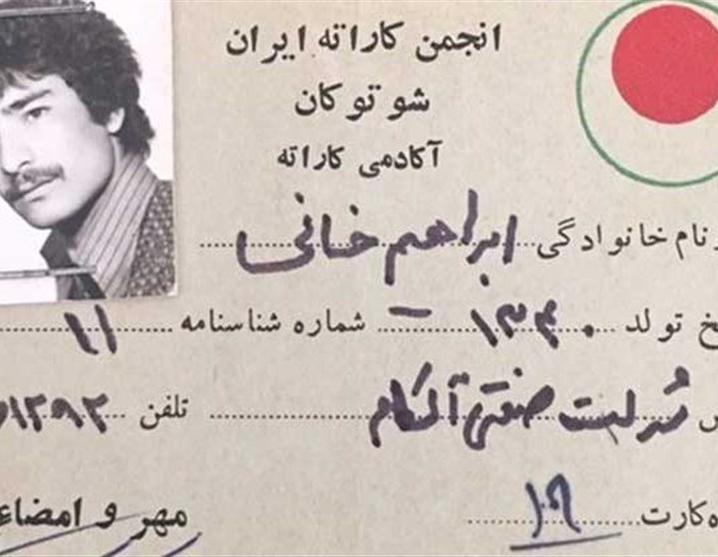 انجمن کاراته ایران
شوتوکان
آکادمی کاراته
نام خانوادگی ابراهیم خانی
تولد ۱۳۴۰ شماره شناسنامه ۱۱
صنعتی تلفن ۱۲۹۲
کارت ۱۰۹
مهر و امضاء